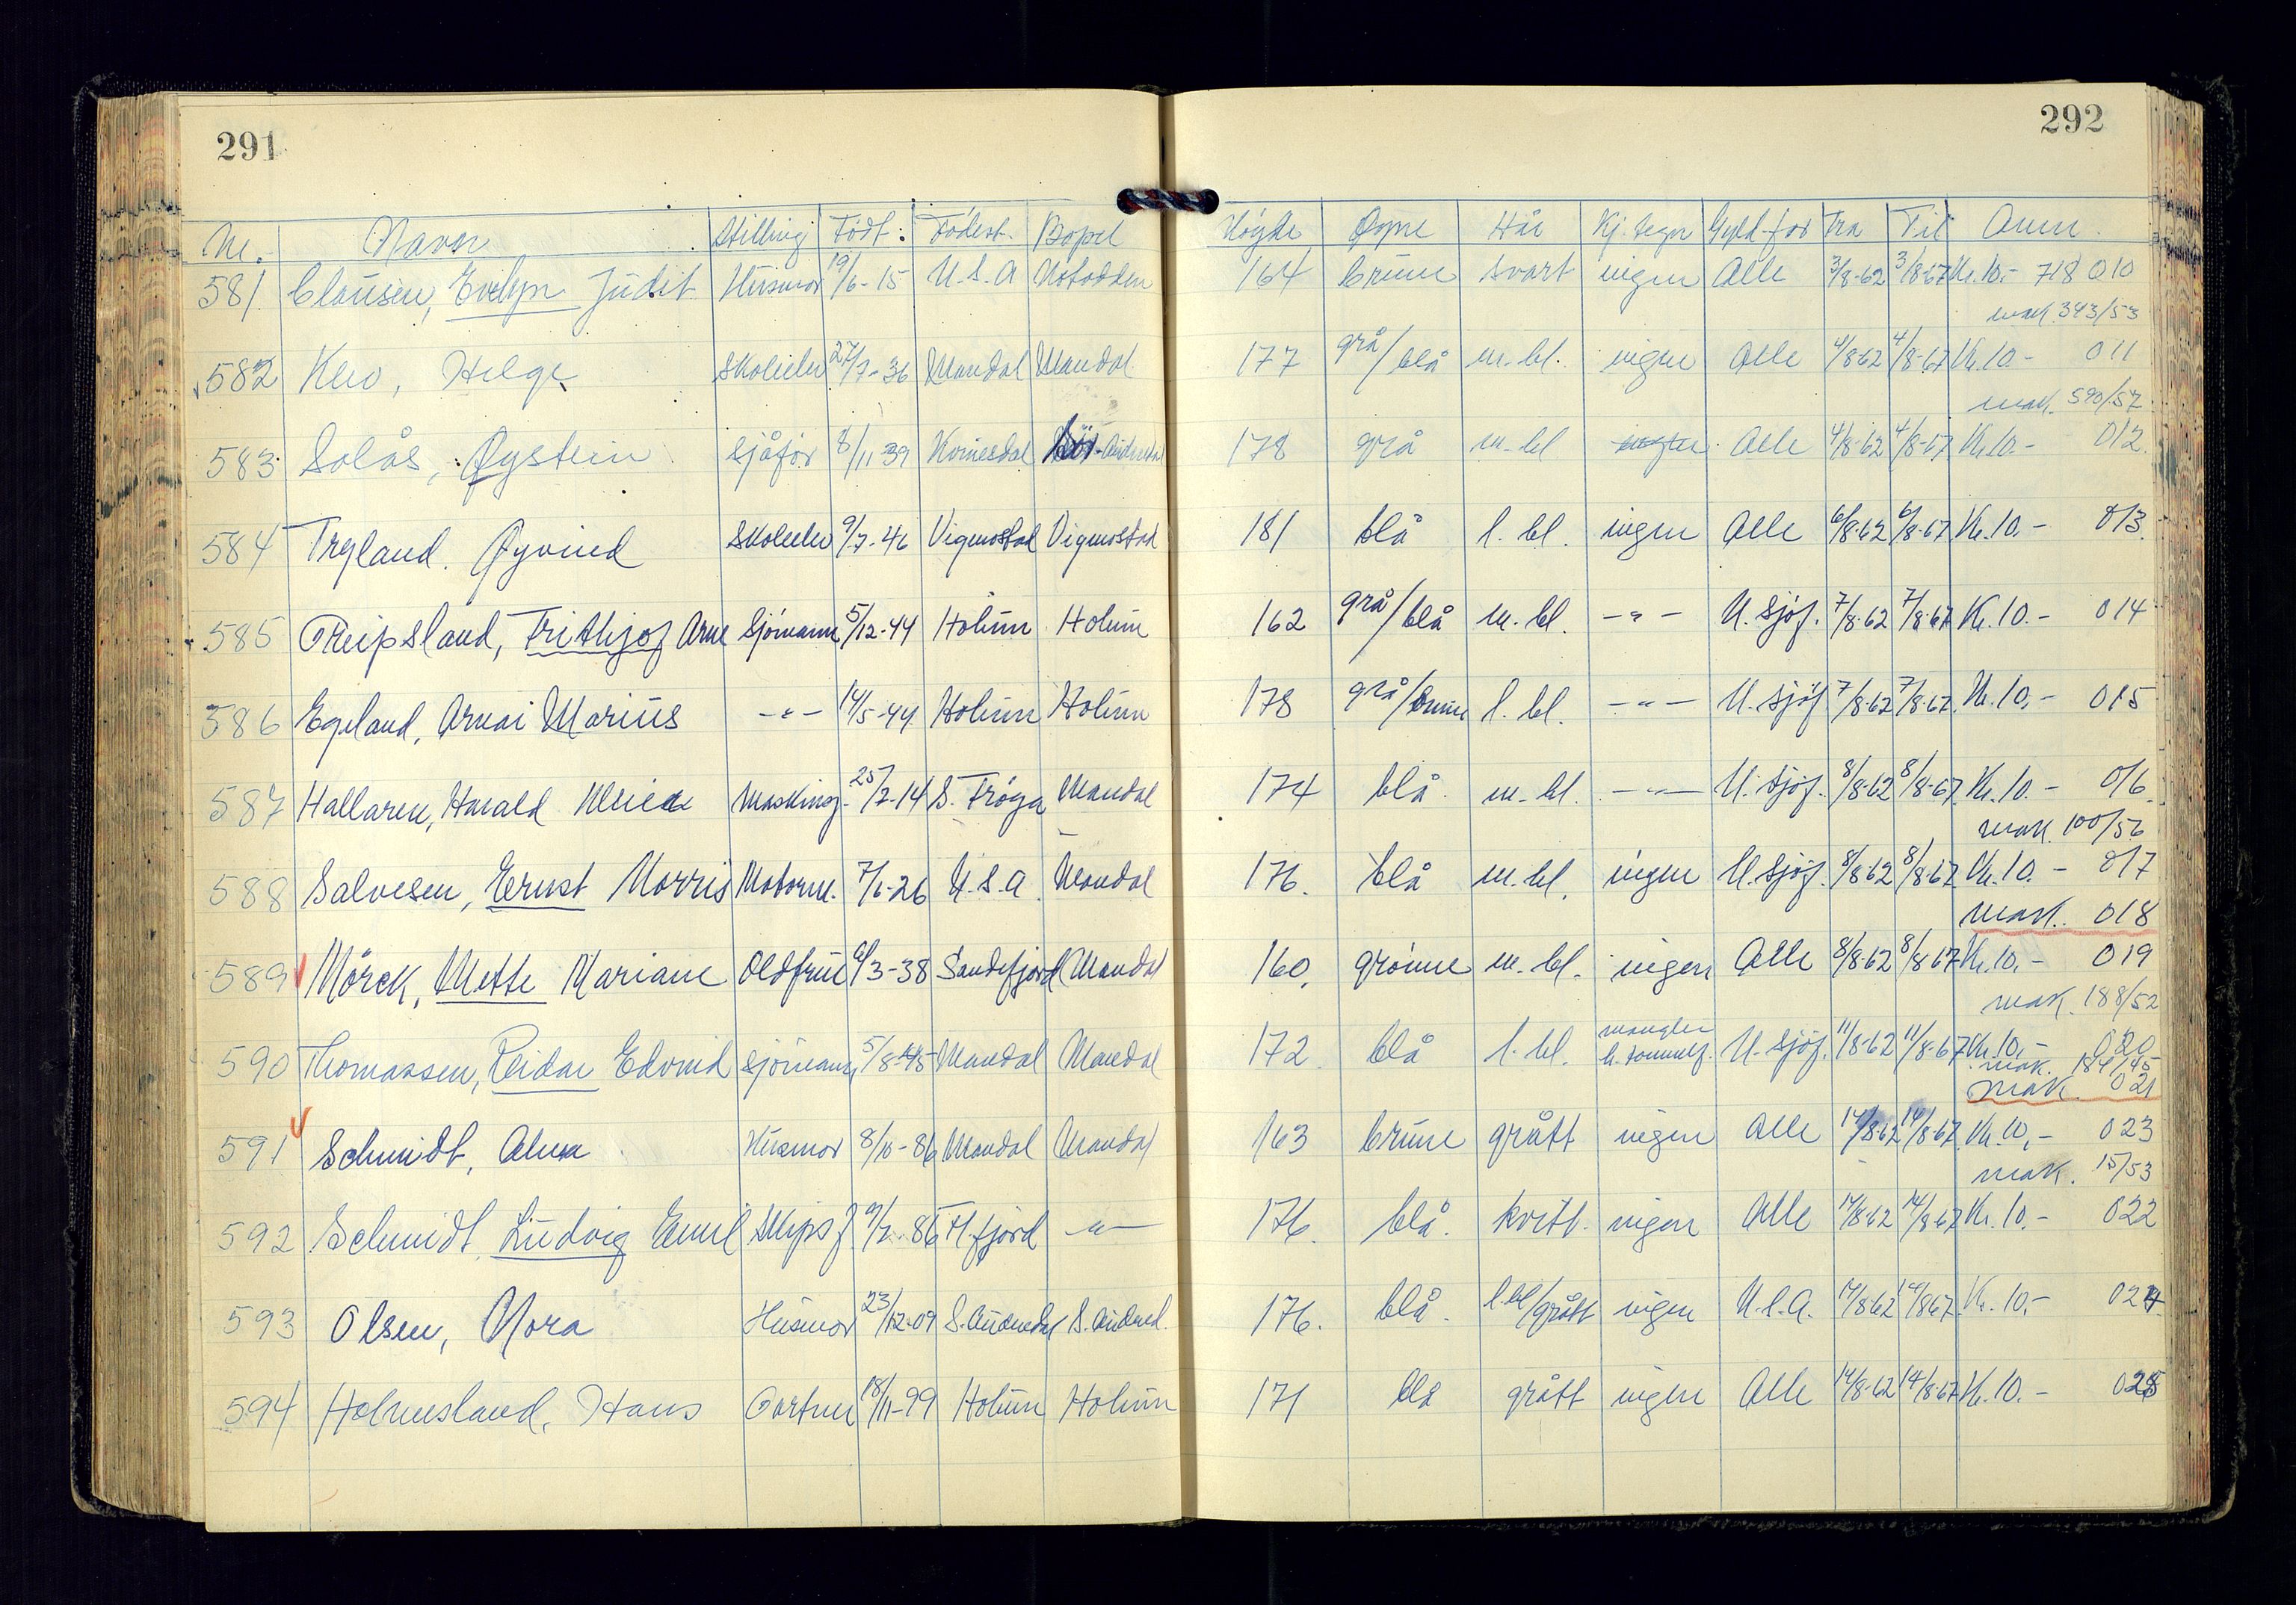 291
292
Nr. Navn Stilling Født: Fødest. Bopel Høyde Øyne Hår Kj. tegn Gyld. for Fra Til Anm.
581 Clausen, Evelyn Judit Husmor 19/6-15 U.S.A Notodden 164 brune svart ingen Alle 3/8-62 3/8-67 Kr. 10.- 718 010
mak. 343/53
582 Helge Skoleelev 27/7-36 Mandal Mandal 177 grå/blå m.bl. ingen Alle 4/8-62 4/8-67 Kr. 10.- 011
mak. 590/57
583 Solås, Øystein sjåfør 8/11-39 Kvinesdal Sør-Audnedal 178 grå m.bl ingen Alle 4/8-62 4/8-67 Kr. 10.- 012
584 Trygland. Øyvind Skoleelev 9/7-46 Vigmostad Vigmostad 181 blå l.bl. ingen Alle 6/8-62 6/8-67 Kr. 10.- 013
585 Reipsland, Frithjof Arne Sjømann 5/12-44 Holum Holum 162 grå/blå m.bl. -"- U. sjøf. 7/8-62 7/8-67 Kr. 10.- 014
586 Egeland, Arnai Marius -"- 14/5-44 Holum Holum 178 grå/brune l.bl. -"- U. sjøf. 7/8-62 7/8-67 Kr. 10.- 015
587 Hallaren, Harald Masking. 25/7-14 S. Frøya Mandal 174 blå m.bl. -"- U. sjøf. 8/8-62 8/8-67 Kr. 10.- 016
mak. 100/56
588 Salvesen, Ernst Morris Motorm. 7/6-26 U.S.A. Mandal 176. blå m.bl. ingen U. sjøf. 8/8-62 8/8-67 Kr. 10.- 017
mak. 018
589 Mørck, Mette Mariane Oldfrue 9/3-38 Sandefjord Mandal 160. grønne m.bl. ingen Alle 8/8-62 8/8-67 Kr. 10.- 019
mak. 188/52
590 Thomassen, Reidar Edvind sjømann 5/8-45 Mandal Mandal 172 blå l.bl. mangler U. sjøf. 11/8-62 11/8-67 Kr. 10.- 020
mak. 184/45
mak. 021
591 Schmidt, Alma Husmor 8/10-86 Mandal Mandal 163 brune grått ingen Alle 14/8-62 14/8-67 Kr. 10.- 023
mak. 15/53
592 Schmidt, Ludvig Emil Skipsf 9/2-86 Fl. fjord -"- 176. blå. kvitt. ingen Alle 14/8-62 14/8-67 Kr. 10.- 022
593 Olsen, Nora Husmor 23/12-09 S. Audnedal S. Audned. 176. blå. l.bl/grått ingen U.S.A. 14/8-62 14/8-67 Kr. 10.- 024
594 Holmesland, Hans Gartner 18/11-99 Holum Holum 171 blå grått ingen Alle 14/8-62 14/8-67 Kr. 10.- 025